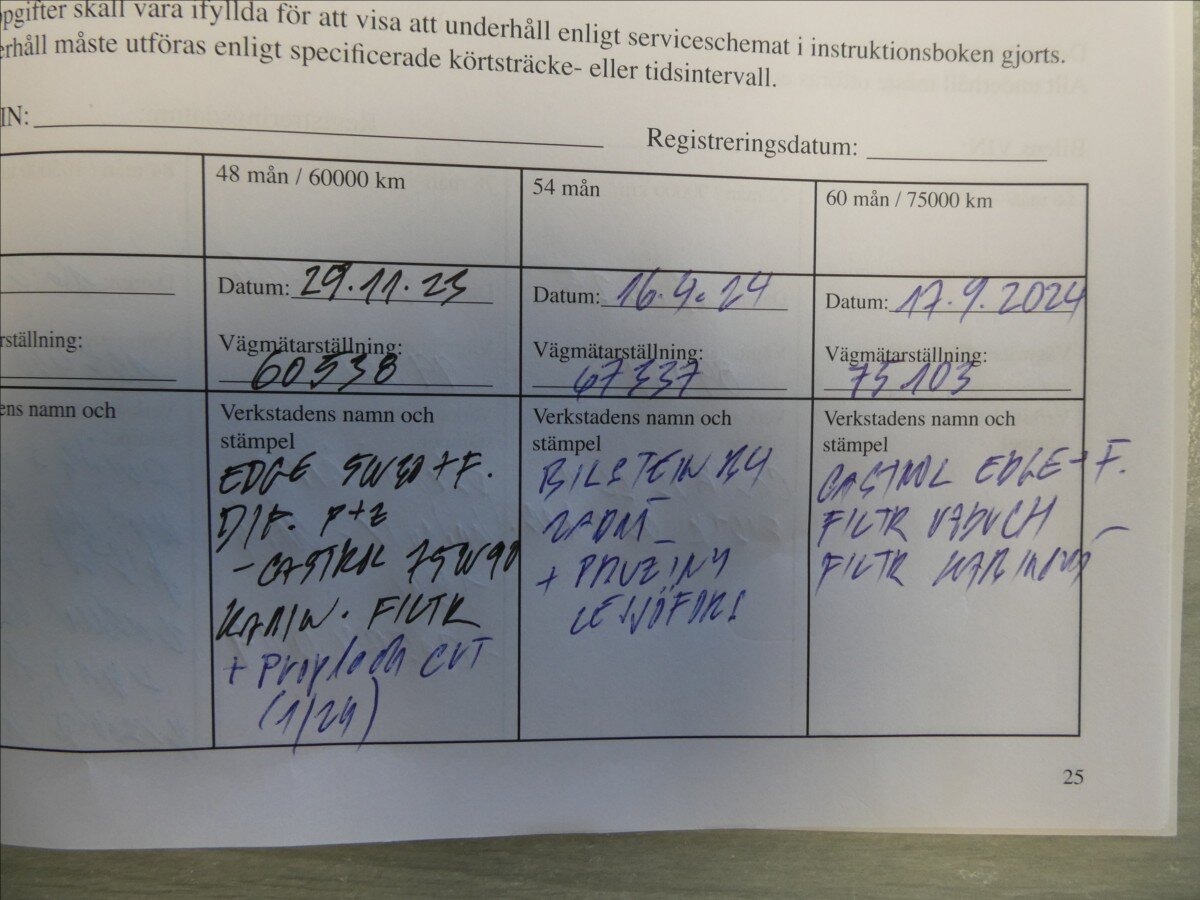 pgifter skall vara ifyllda för att visa att underhåll enligt serviceschemat i instruktionsboken gjorts.
erhåll måste utföras enligt specificerade körtsträcke- eller tidsintervall.
IN:
Registreringsdatum:
48 mån / 60000 km
54 mån
60 mån / 75000 km
Datum: 29.11.23
Datum: 16.4.24
Datum: 17.9.2024
rställning:
Vägmätarställning:
60538
Vägmätarställning:
67337
Vägmätarställning:
75103
ens namn och
Verkstadens namn och
stämpel
EDGE 5W30+F.
DIF. P+Z
- CASTROL 75W90
KABIN. FILTR
+ Proplach CVT
(1/24)
Verkstadens namn och
stämpel
BILSTEIN B4
ZADNÍ
+ PRUŽINY
LESJÖFORS
Verkstadens namn och
stämpel
CASTROL EDGE+F.
FILTR VZDUCH
FILTR KABINOVÝ
25